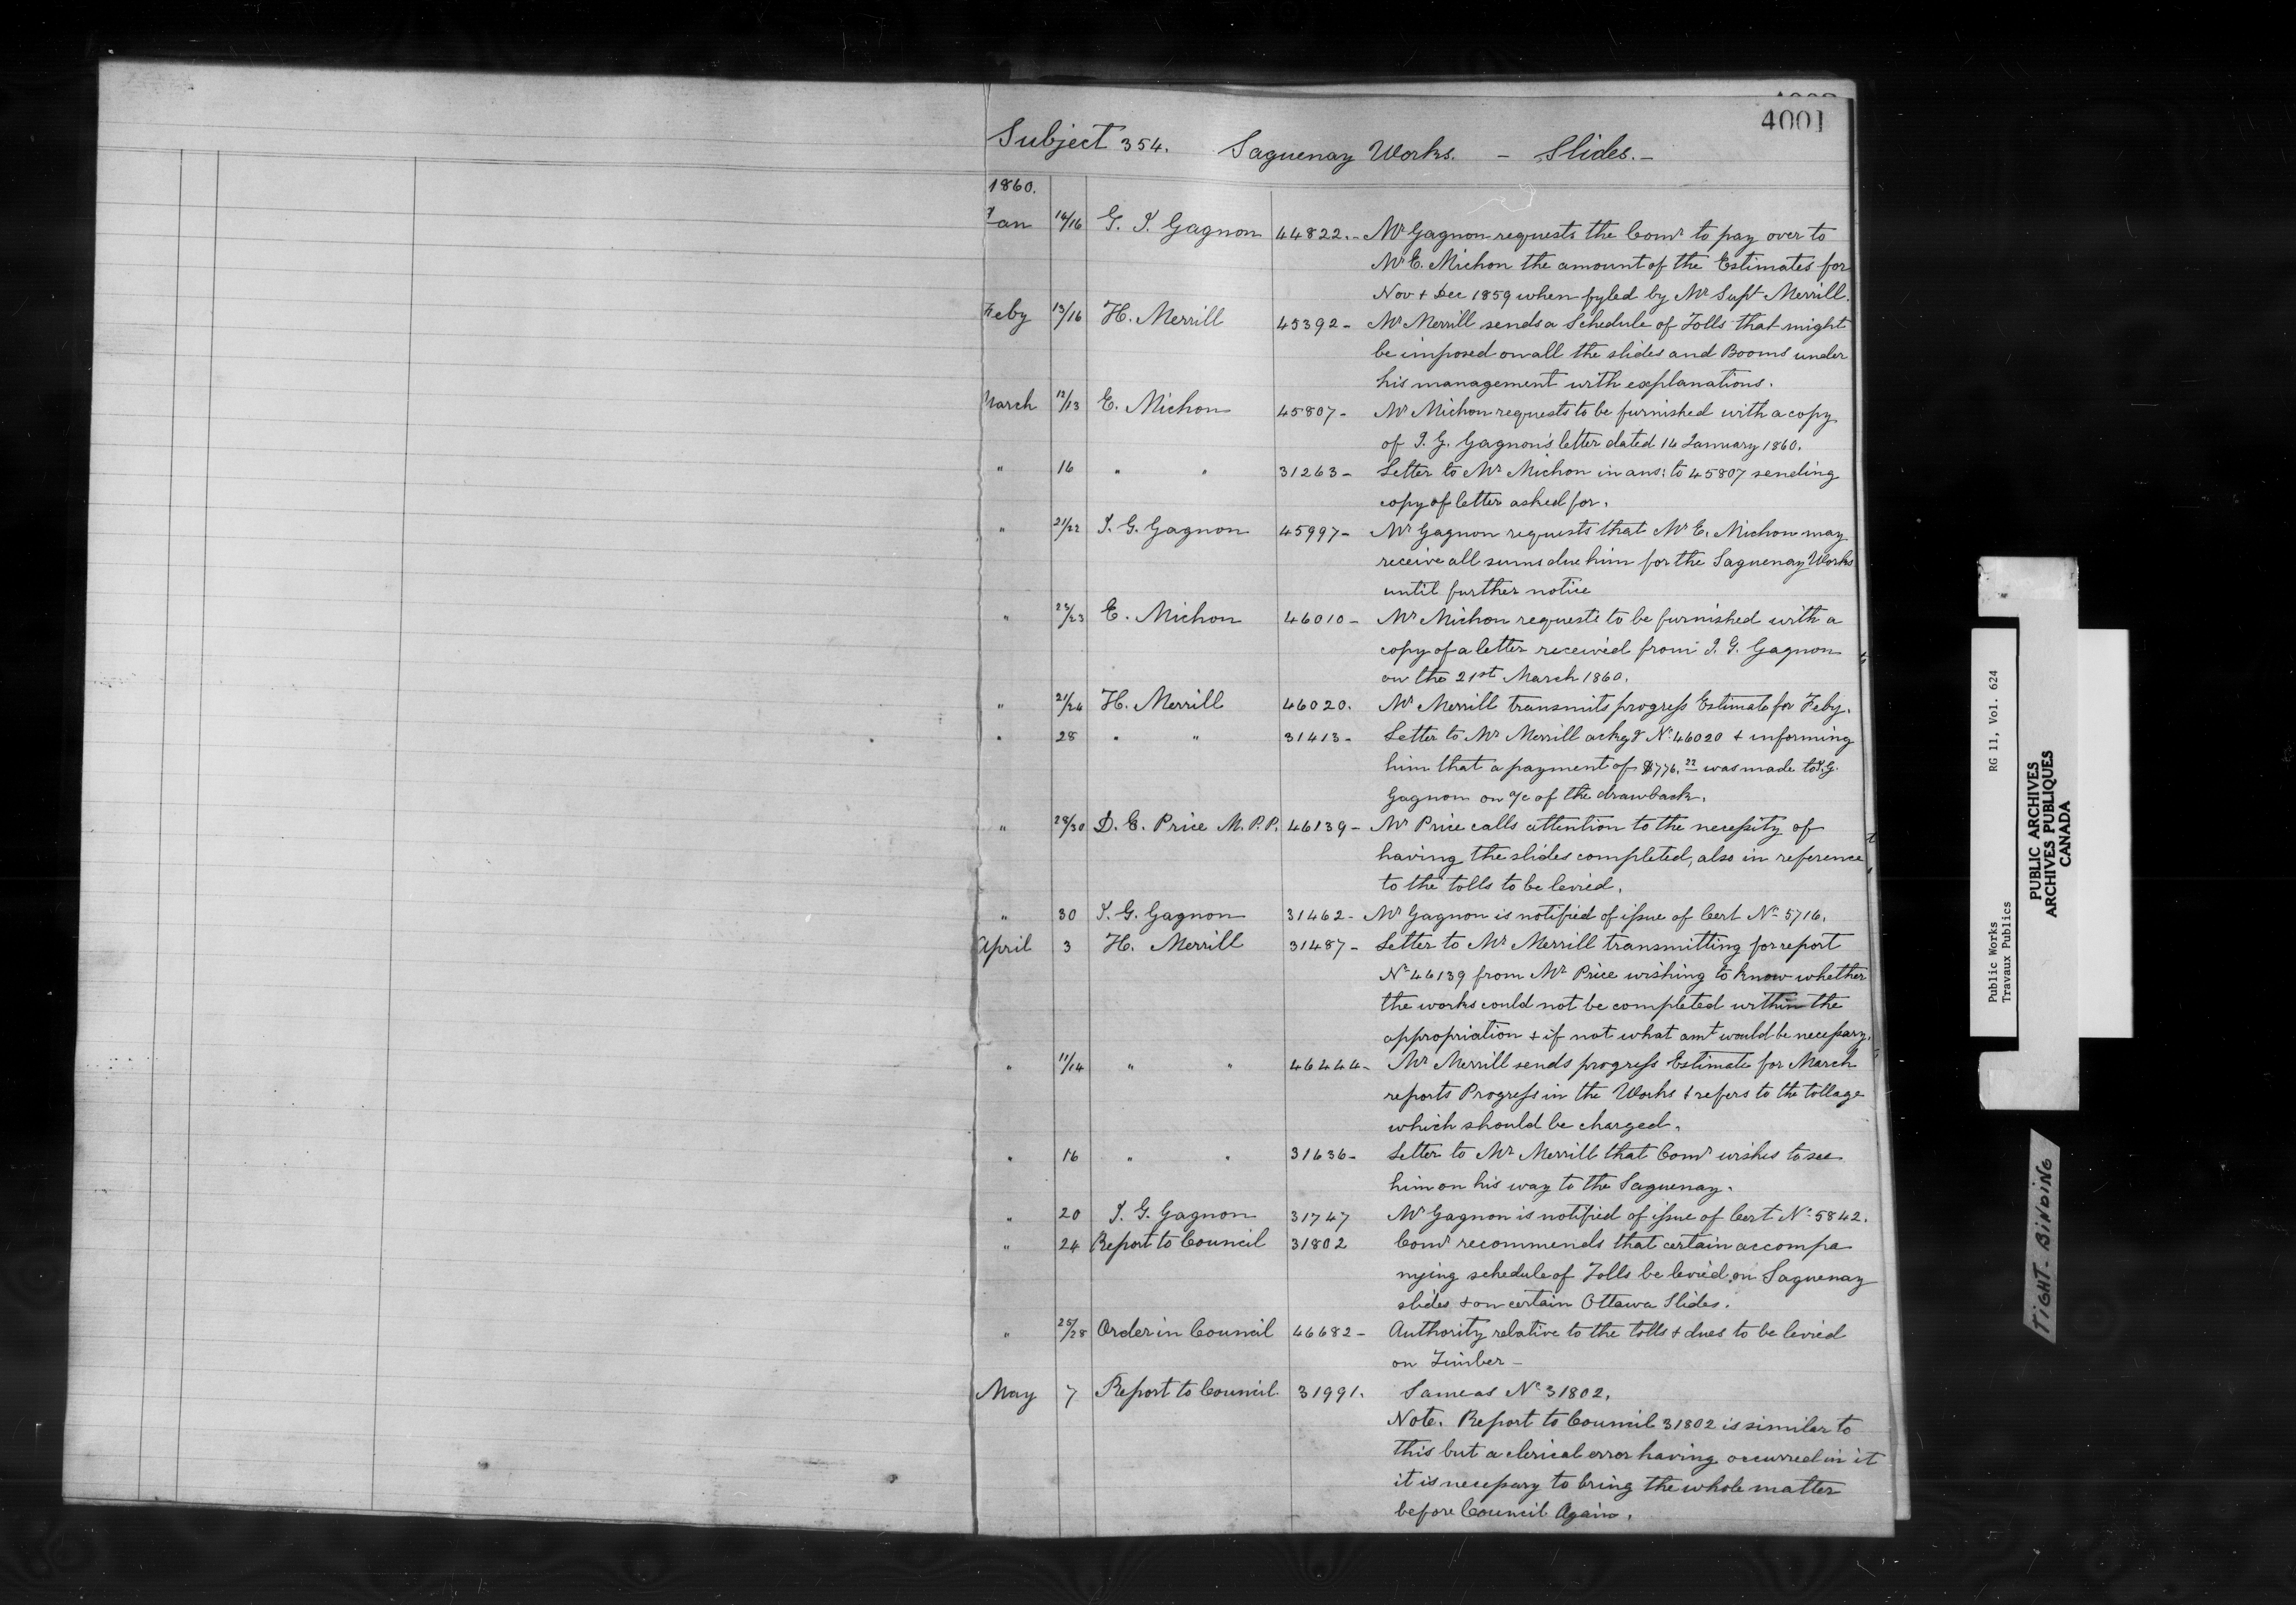 4001
Subject 354. Saguenay Works. - Slides. -
1860.
Jan 14/16 G. I. Gagnon 44822. - Mr Gagnon requests the Comr to pay over to
Mr E. Michon the amount of the Estimates for
Nov + Dec 1859 when fyled by Mr Supt Merrill.
Feby 13/16 H. Merrill 45392 - Mr Merrill sends a Schedule of Tolls that might
be imposed on all the slides and Booms under
his management with explanations.
March 12/13 E. Michon 45807 - Mr Michon requests to be furnished with a copy
of I. G. Gagnon's letter dated 14 January 1860.
" 16 " " 31263 - Letter to Mr Michon in ans: to 45807 sending
copy of letter asked for.
" 21/22 I. G. Gagnon 45997 - Mr Gagnon requests that Mr E. Michon may
receive all sums due him for the Saguenay Works
until further notice
" 22/23 E. Michon 46010 - Mr Michon requests to be furnished with a
copy of a letter received from I. G. Gagnon
on the 21st March 1860.
" 21/24 H. Merrill 46020. Mr Merrill transmits progress Estimate for Feby.
" 28 " " 31413 - Letter to Mr Merrill ackgg No 46020 + informing
him that a payment of $776.22 was made to I. G.
Gagnon on a/c of the drawback.
" 28/30 D. E. Price M.P.P. 46139 - Mr Price calls attention to the necessity of
having the slides completed, also in reference
to the tolls to be levied.
" 30 I. G. Gagnon 31462 - Mr Gagnon is notified of issue of Cert No 5716.
April 3 H. Merrill 31487 - Letter to Mr Merrill transmitting for report
No 46139 from Mr Price wishing to know whether
the works could not be completed within the
appropriation + if not what amt would be necessary.
" 11/14 " " 46444 - Mr Merrill sends progress Estimate for March
reports Progress in the Works + refers to the tollage
which should be charged.
" 16 " " 31636 - Letter to Mr Merrill that Comr wishes to see
him on his way to the Saguenay.
" 20 I. G. Gagnon 31747 Mr Gagnon is notified of issue of Cert No 5842.
" 24 Report to Council 31802 Comr recommends that certain accompa
nying schedule of Tolls be levied on Saguenay
slides + on certain Ottawa Slides.
" 25/28 Order in Council 46682 - Authority relative to the tolls + dues to be levied
on Timber -
May 7 Report to Council 31991. Same as No 31802.
Note. Report to Council 31802 is similar to
this but a clerical error having occurred in it
it is necessary to bring the whole matter
before Council Again.
Public Works
Travaux Publics
RG 11, Vol. 624
PUBLIC ARCHIVES
ARCHIVES PUBLIQUES
CANADA
TIGHT-BINDING